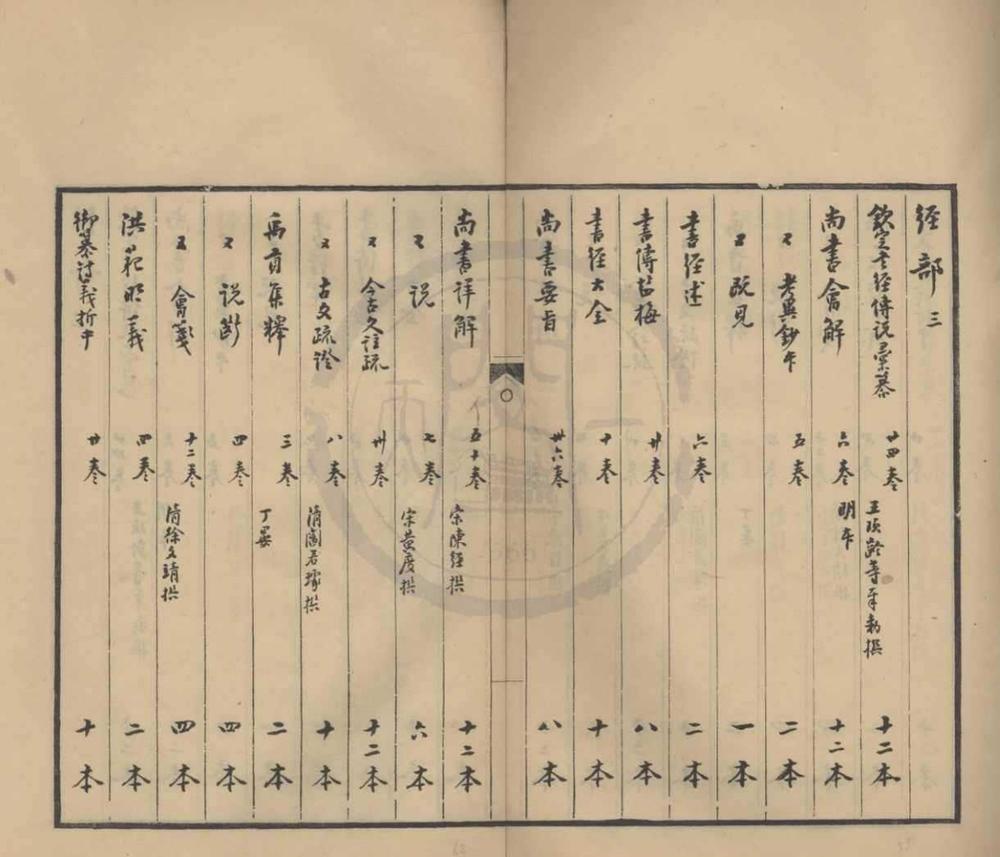 经部三
欽定书经傳说彙纂 廿四卷 王頊齡等奉勅撰 十二本
尚書會解 六卷 明本 十二本
〻 考異鈔本 五卷 二本
〻 既見 一本
書經述 六卷 二本
書傳鹽梅 廿卷 八本
書经大全 十卷 十本
尚書要旨 卅六卷 八本
尚書详解 五十卷 宋陳经撰 十二本
〻 说 七卷 宋黄度撰 六本
〻 今古文注疏 卅卷 十二本
〻 古文疏證 八卷 清阎若璩撰 十本
禹貢集釋 三卷 丁晏 二本
〻 说斷 四卷 四本
〻 會箋 十二卷 清徐文靖撰 四本
洪范明義 四卷 二本
御纂诗義折中 廿卷 十本